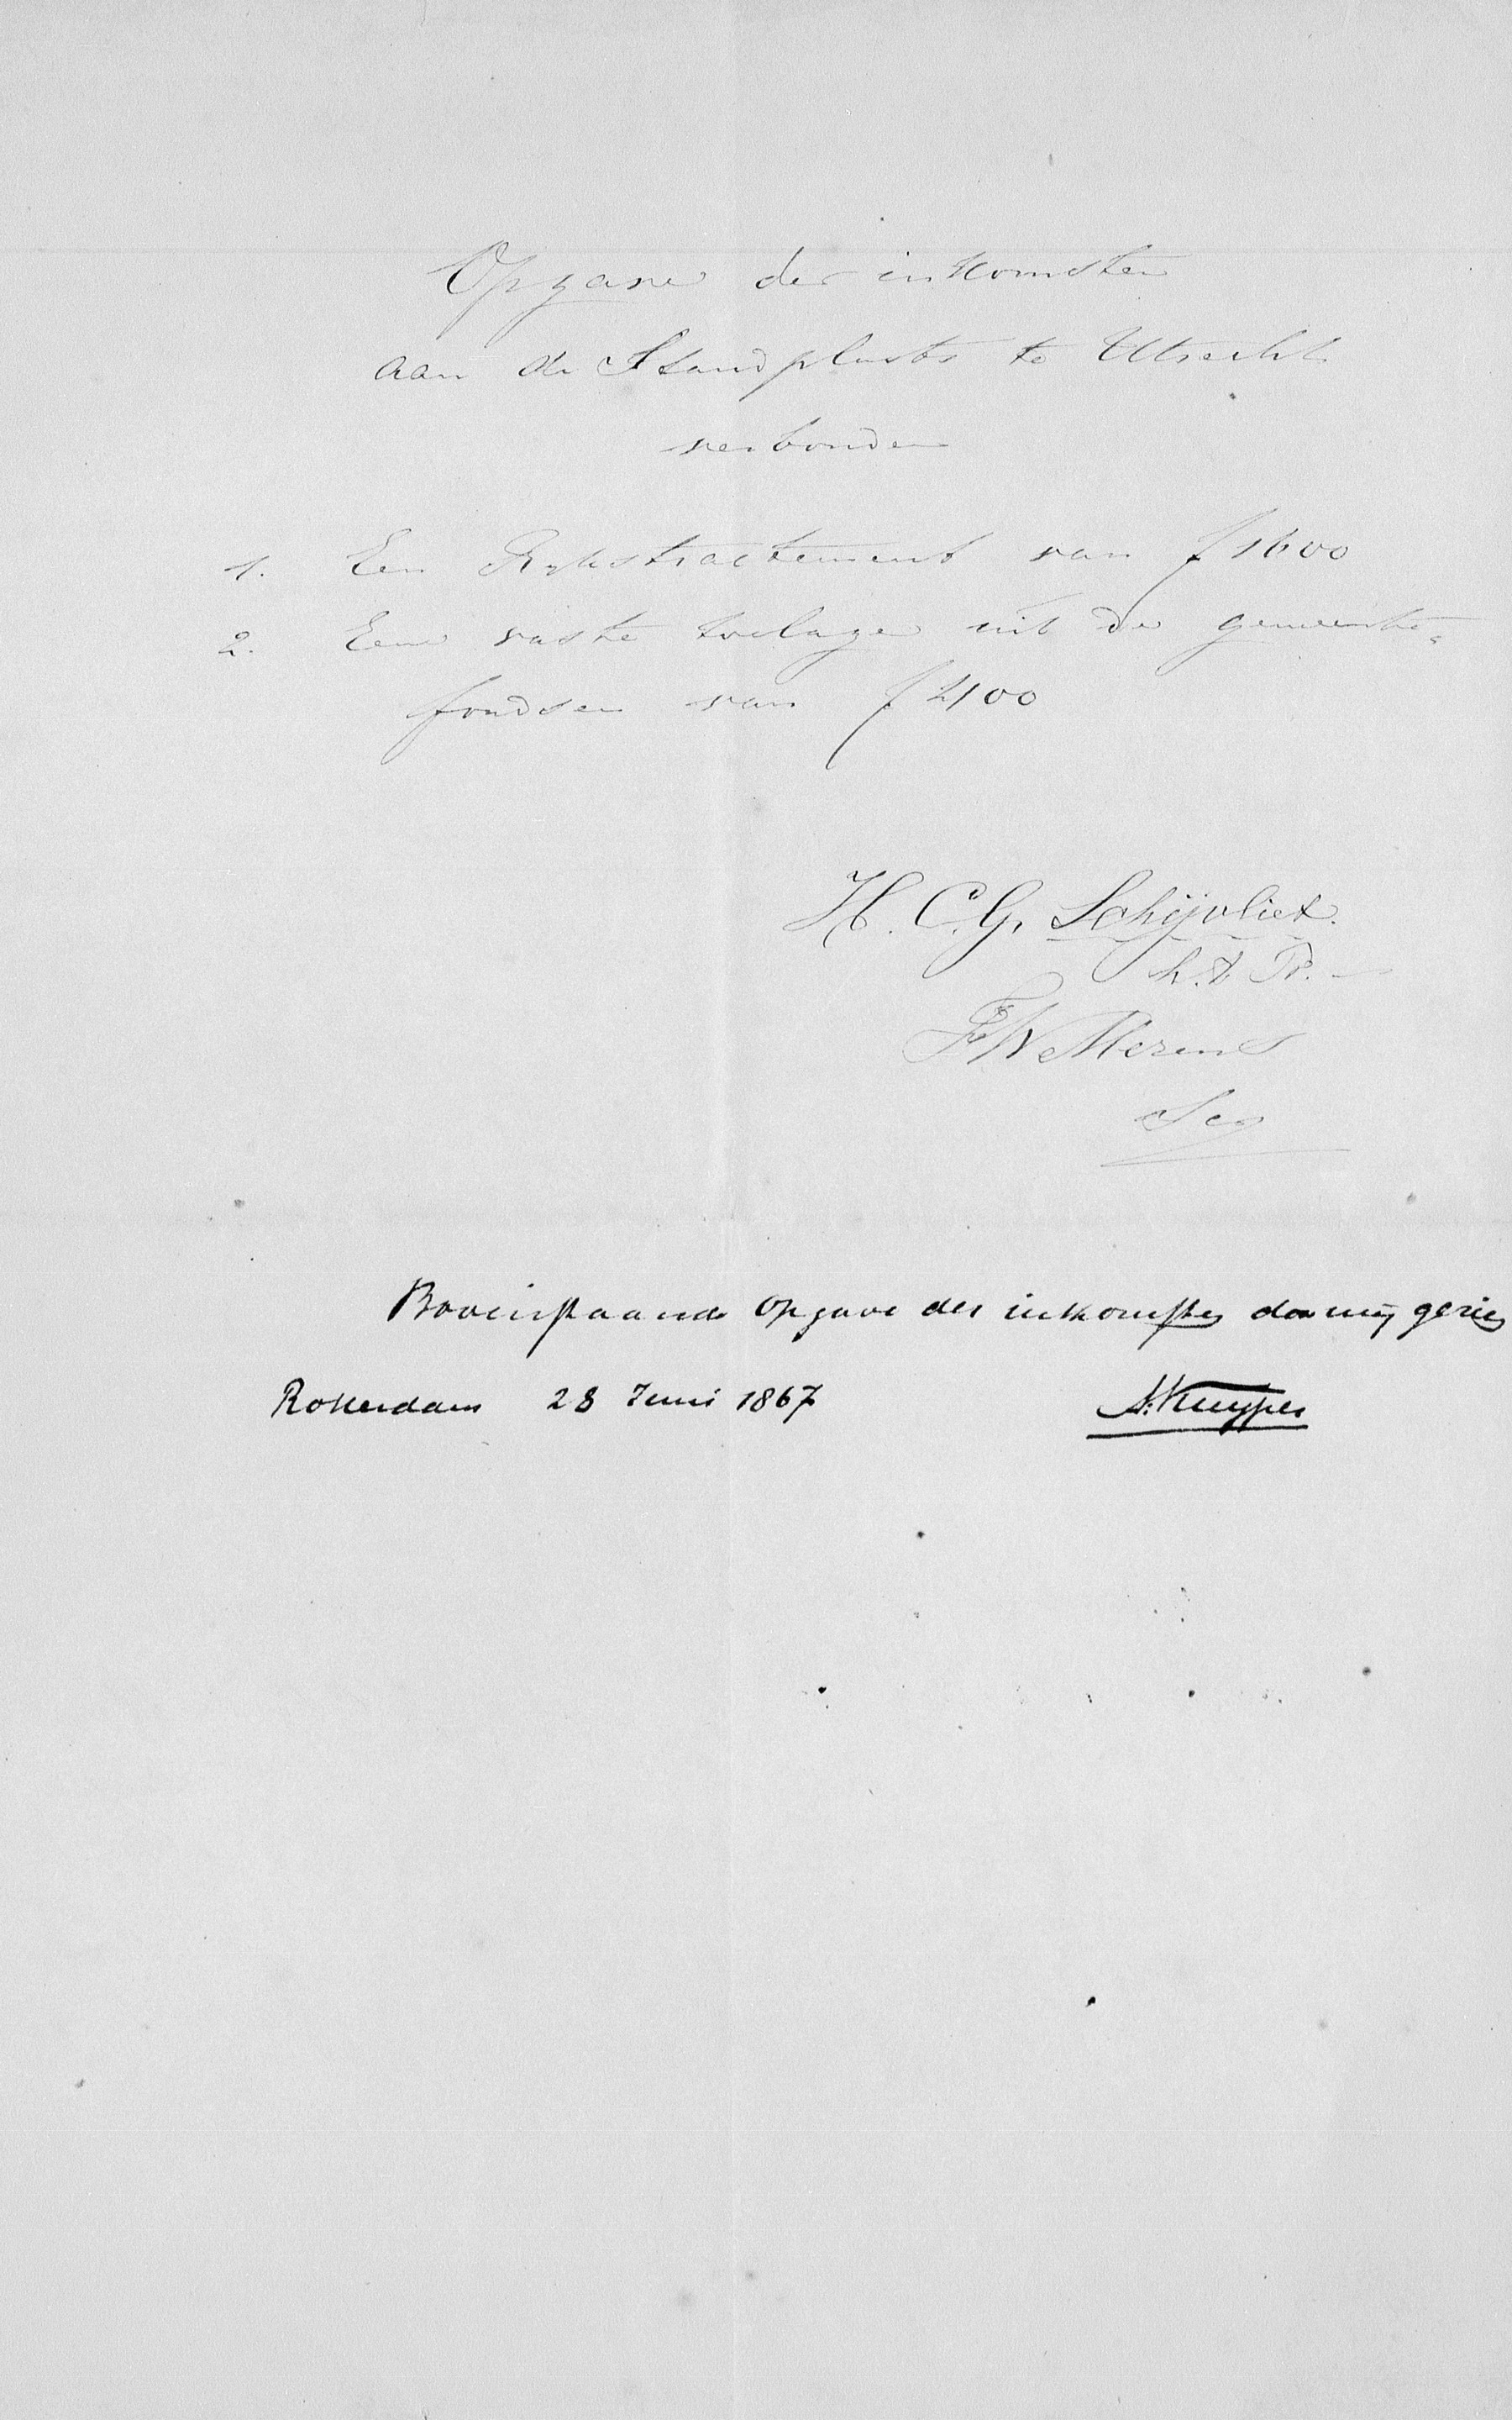 Opgave der inkomsten
aan de Standplaats te Utrecht
verbonden
1. Een Rijkstractement van f 1600
2. Eene vaste toelage uit de gemeente-
fondsen van f 2100
H. C. G. Schijvliet.
h. t. Pr.
F W Merens
Scr
Bovenstaande Opgave der inkomsten door mij gezien
Rotterdam 28 Juni 1867
A. Kuyper